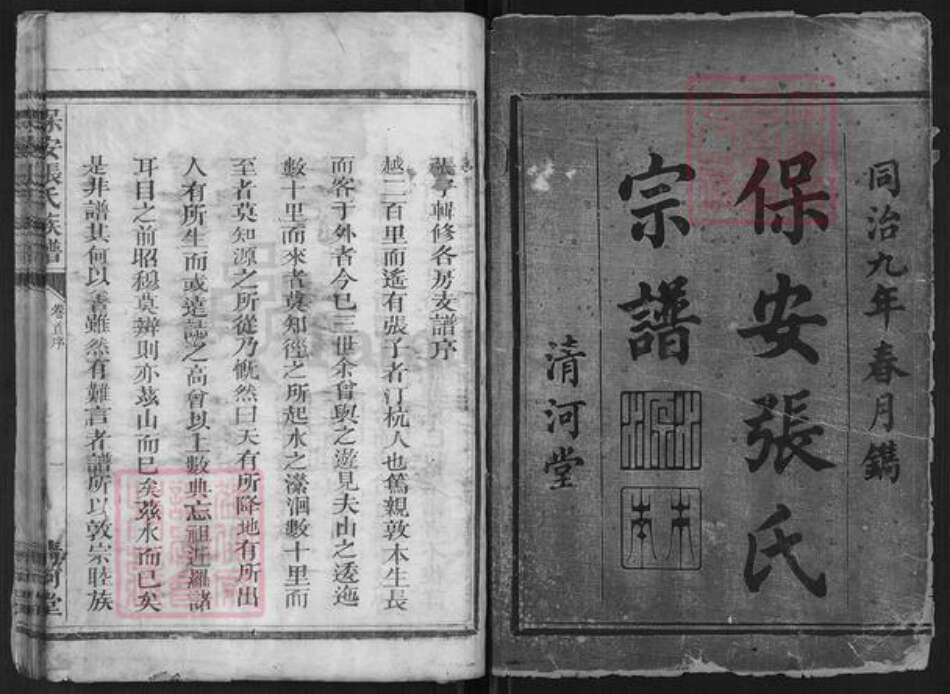 同治九年春月鐫
保安張氏
宗譜
清河堂
張子輯修各房支譜序
越二百里而遙有張子者汀杭人也篤親敦本生長
而客于外者今已三世余曾與之遊見夫山之透迤
數十里而來者莫知徑之所起水之瀠洄數十里而
至者莫知源之所從乃慨然曰天有所降地有所出
人有所生而或遠誌之高曾以上數典忘祖近羅諸
耳目之前昭穆莫辨則亦茲山而已矣茲水而已矣
是非譜其何以書雖然有難言者譜所以敦宗睦族
保安張氏族譜
卷首序
一
清河堂